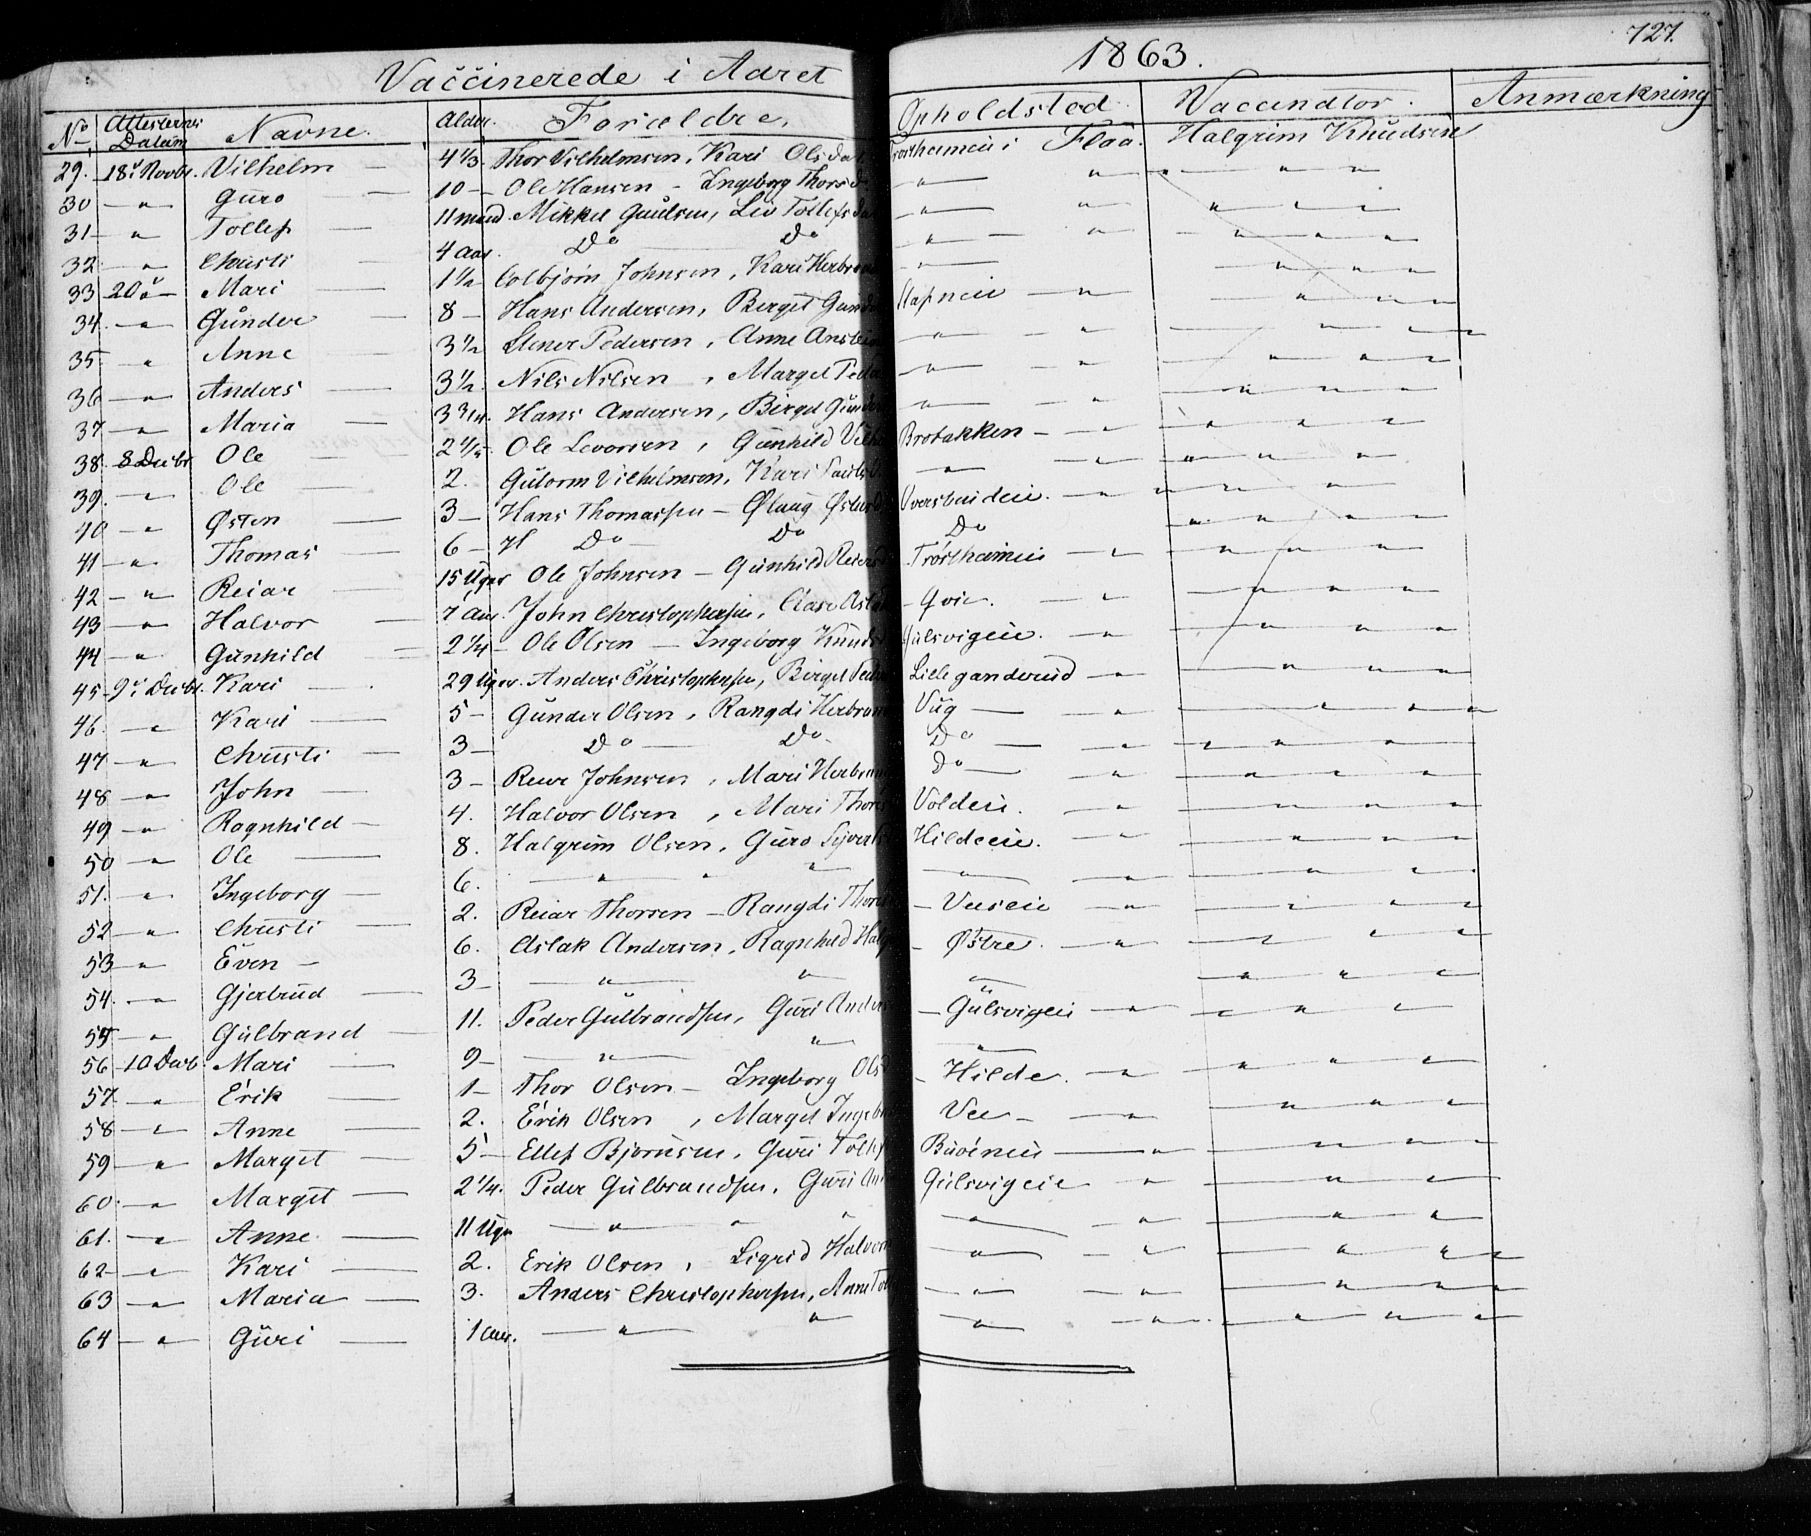 727.
Vaccinerede i Aaret 1863.
No Attesternes Datum Navne. Alder. Forældre. Opholdsted. Vaccinatør. Anmærkning
29. 18. Novbr. Vilhelm 4 1/3. Thor Vilhelmsen, Kari Olsdat Trostheimeie i Flaa. Halgrim Knudsen
30 " Guro 10 - Ole Hansen - Ingeborg Thorsd " " " " "
31 " Tollef 11 maad. Mikkel Paulsen, Liv Tollefsda " " " " "
32 " Christi 4 aar. Do Do " " " " "
33 20 " Mari 1 1/2 Colbjørn Johnsen, Kari Herbran " " " "
34. " Gunder 8 - Hans Andersen, Berget Gunde " " "
35 " Anne 3 1/2 Stener Pedersen, Anne Anstein " " " " "
36 " Anders 3 1/2. Nils Nilsen, Marget Peder " " " " "
37 " Maria 3 3/4. Hans Andersen, Birget Gunder " " " " "
38. 8 Decbr Ole 2 Ole Levorsen, Gunhild Vilh Brobakken - " " " "
39. " Ole 2. Gulorm Vilhelmsen, Kari Pauls " " " " "
40 " Østen 3 - Hans Thomassen - Øllaug Østensd " " " "
41 " Thomas 6 - Do Do Do " " "
42 " Reiar 15 Uger Ole Johnsen - Gunhild Reiers Trostheimeie " " " "
43 " Halvor 7 Aar. John Christophersen, - Gvie. " " " "
44 " Gunhild 2 1/4 - Ole Olsen - Ingeborg Knuds Gulsvigeie. " " " "
45 9. Decbr. Kari 29 Uger. Anders Christophersen, Berget Peder Lille ganderud " " "
46. " Kari 5 - Gunder Olsen, Rangdi Herbran Viig " " " "
47 " Christi 3 - Do Do Do " " " "
48 " John 3 - Reier Johnsen, Mari Herbran Do " " " "
49 " Ragnhild 4. Halvor Olsen, Mari Thores Voldeie. " " " "
50 " Ole 8. Halgrim Olsen, Guro Syvert Hildeeie. " " " "
51. " Ingeborg 6. " " " " " " " "
52 " Christi 2. Reiar Thorsen - Rangdi Thor - Veeseie " " " "
53 " Even 6. Aslak Andersen, Ragnhild Halg - Østre. " " " "
54. " Gjertrud 3 - " " " " " "
55 " Gulbrand 11. Peder Gulbrandsen, Guri Anders - Gulsvigeie " " " "
56 10 Decb. Mari 9 - " " " " " "
57 " Erik 1 - Thor Olsen - Ingeborg Ols - Hilde. " " " "
58 " Anne 2. Erik Olsen, Marget Ingeb Vee - " " " "
59 " Marget 5 - Ellef Bjørnsen, Guri Tollef " " " "
60 " Margit 2 1/4. Peder Gulbrandsen, Guri An Gulsvigeie " " " "
61. " Anne 11 Uger " " " " " " " "
62 " Kari 2. Erik Olsen, Sigrid Halvor " " " " "
63 " Maria 3. Anders Christophersen, Anne Tol " " " " "
64 " Guri 1 aar. " " " " " " "